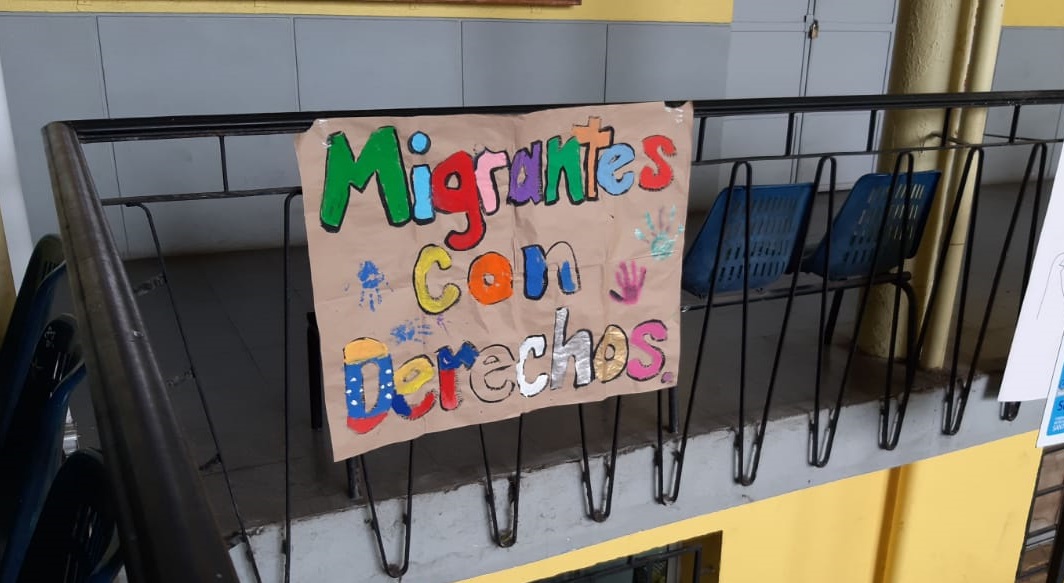 Migrantes
con
Derechos.